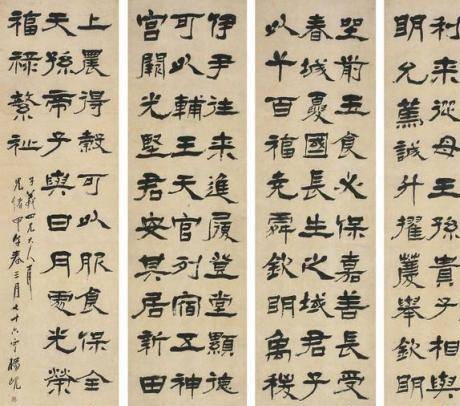 利來從母王孫貴子相與
明允篤誠升擢薦舉欽明
坐前玉食必保嘉善長受
春城夏國長生之域君子
以千百福堯舜欽明禹稷
伊尹往來進履登堂顯德
可以輔王天官列宿五神
宮闕光堅君安其居新田
上農得穀可以服食保全
天孫帝子與日月處光榮
福祿繁祉
四兄大人
光緒甲午春三月七十六叟楊峴